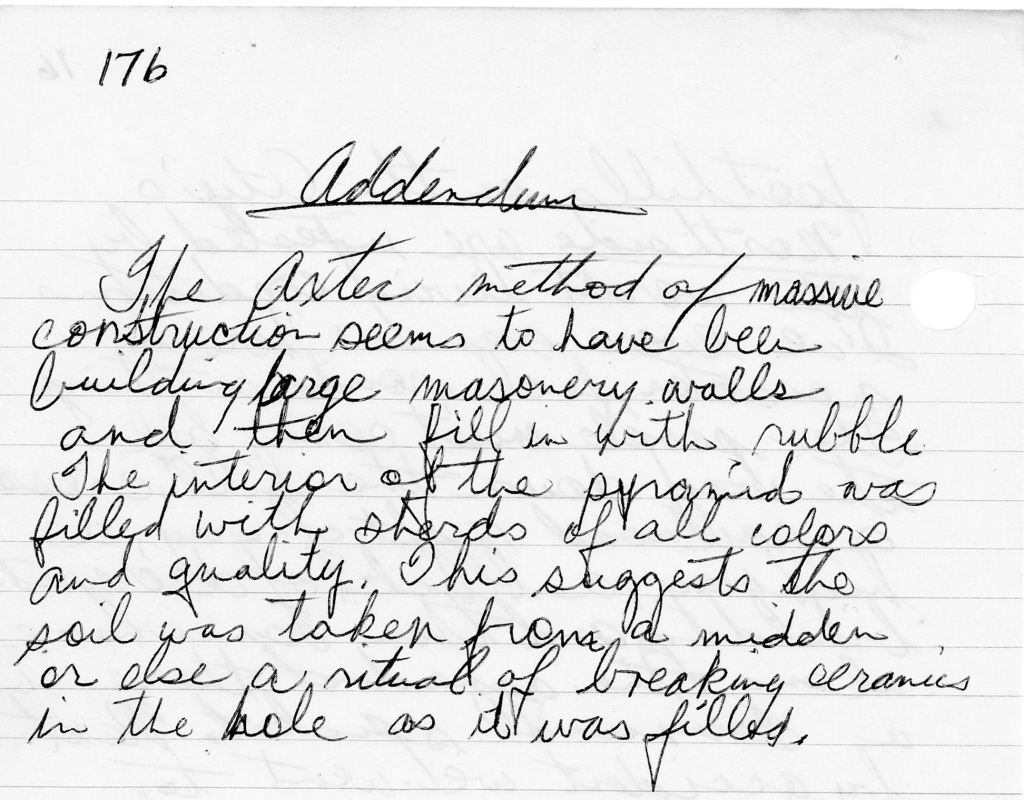 176
Addendum
The Aztec method of massive
construction seems to have been
building large masonery walls
and then fill in with rubble.
The interior of the pyramid was
filled with sherds of all colors
and quality. This suggests the
soil was taken from a midden
or else a ritual of breaking ceramics
in the hole as it was filled.